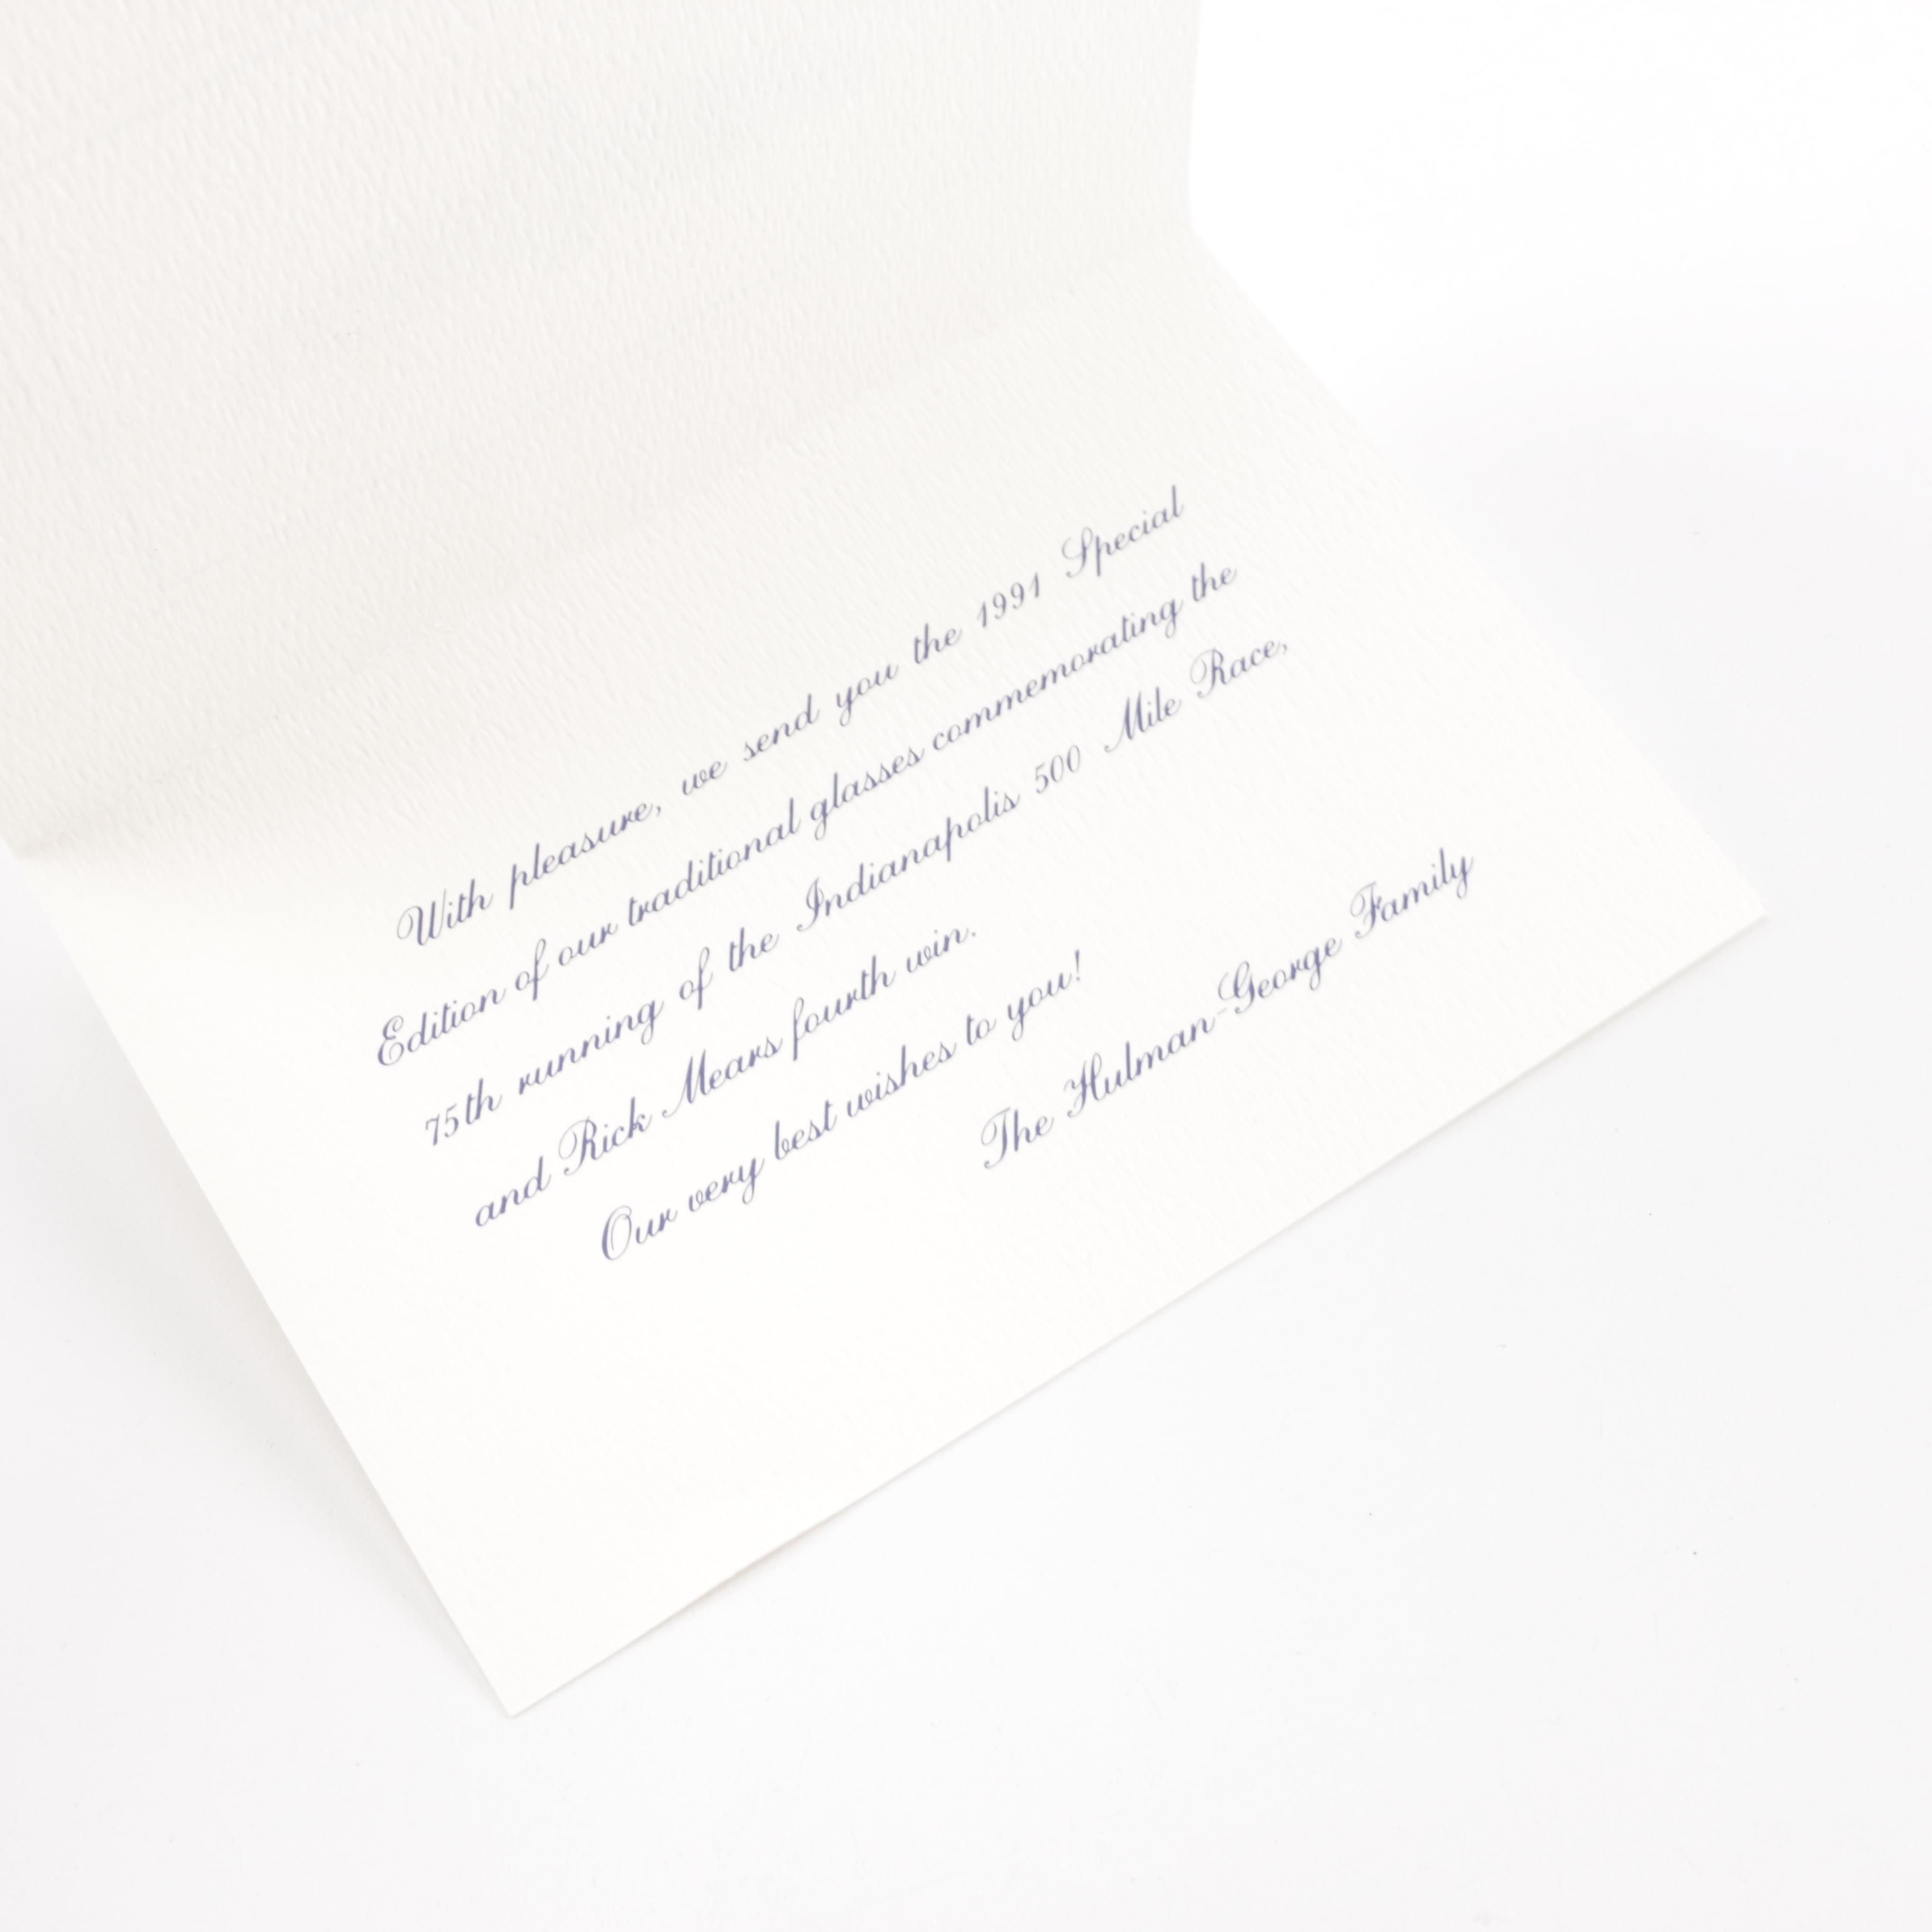 With pleasure, we send you the 1991 Special
Edition of our traditional glasses commemorating the
75th running of the Indianapolis 500 Mile Race,
and Rick Mears fourth win.
Our very best wishes to you!
The Hulman-George Family